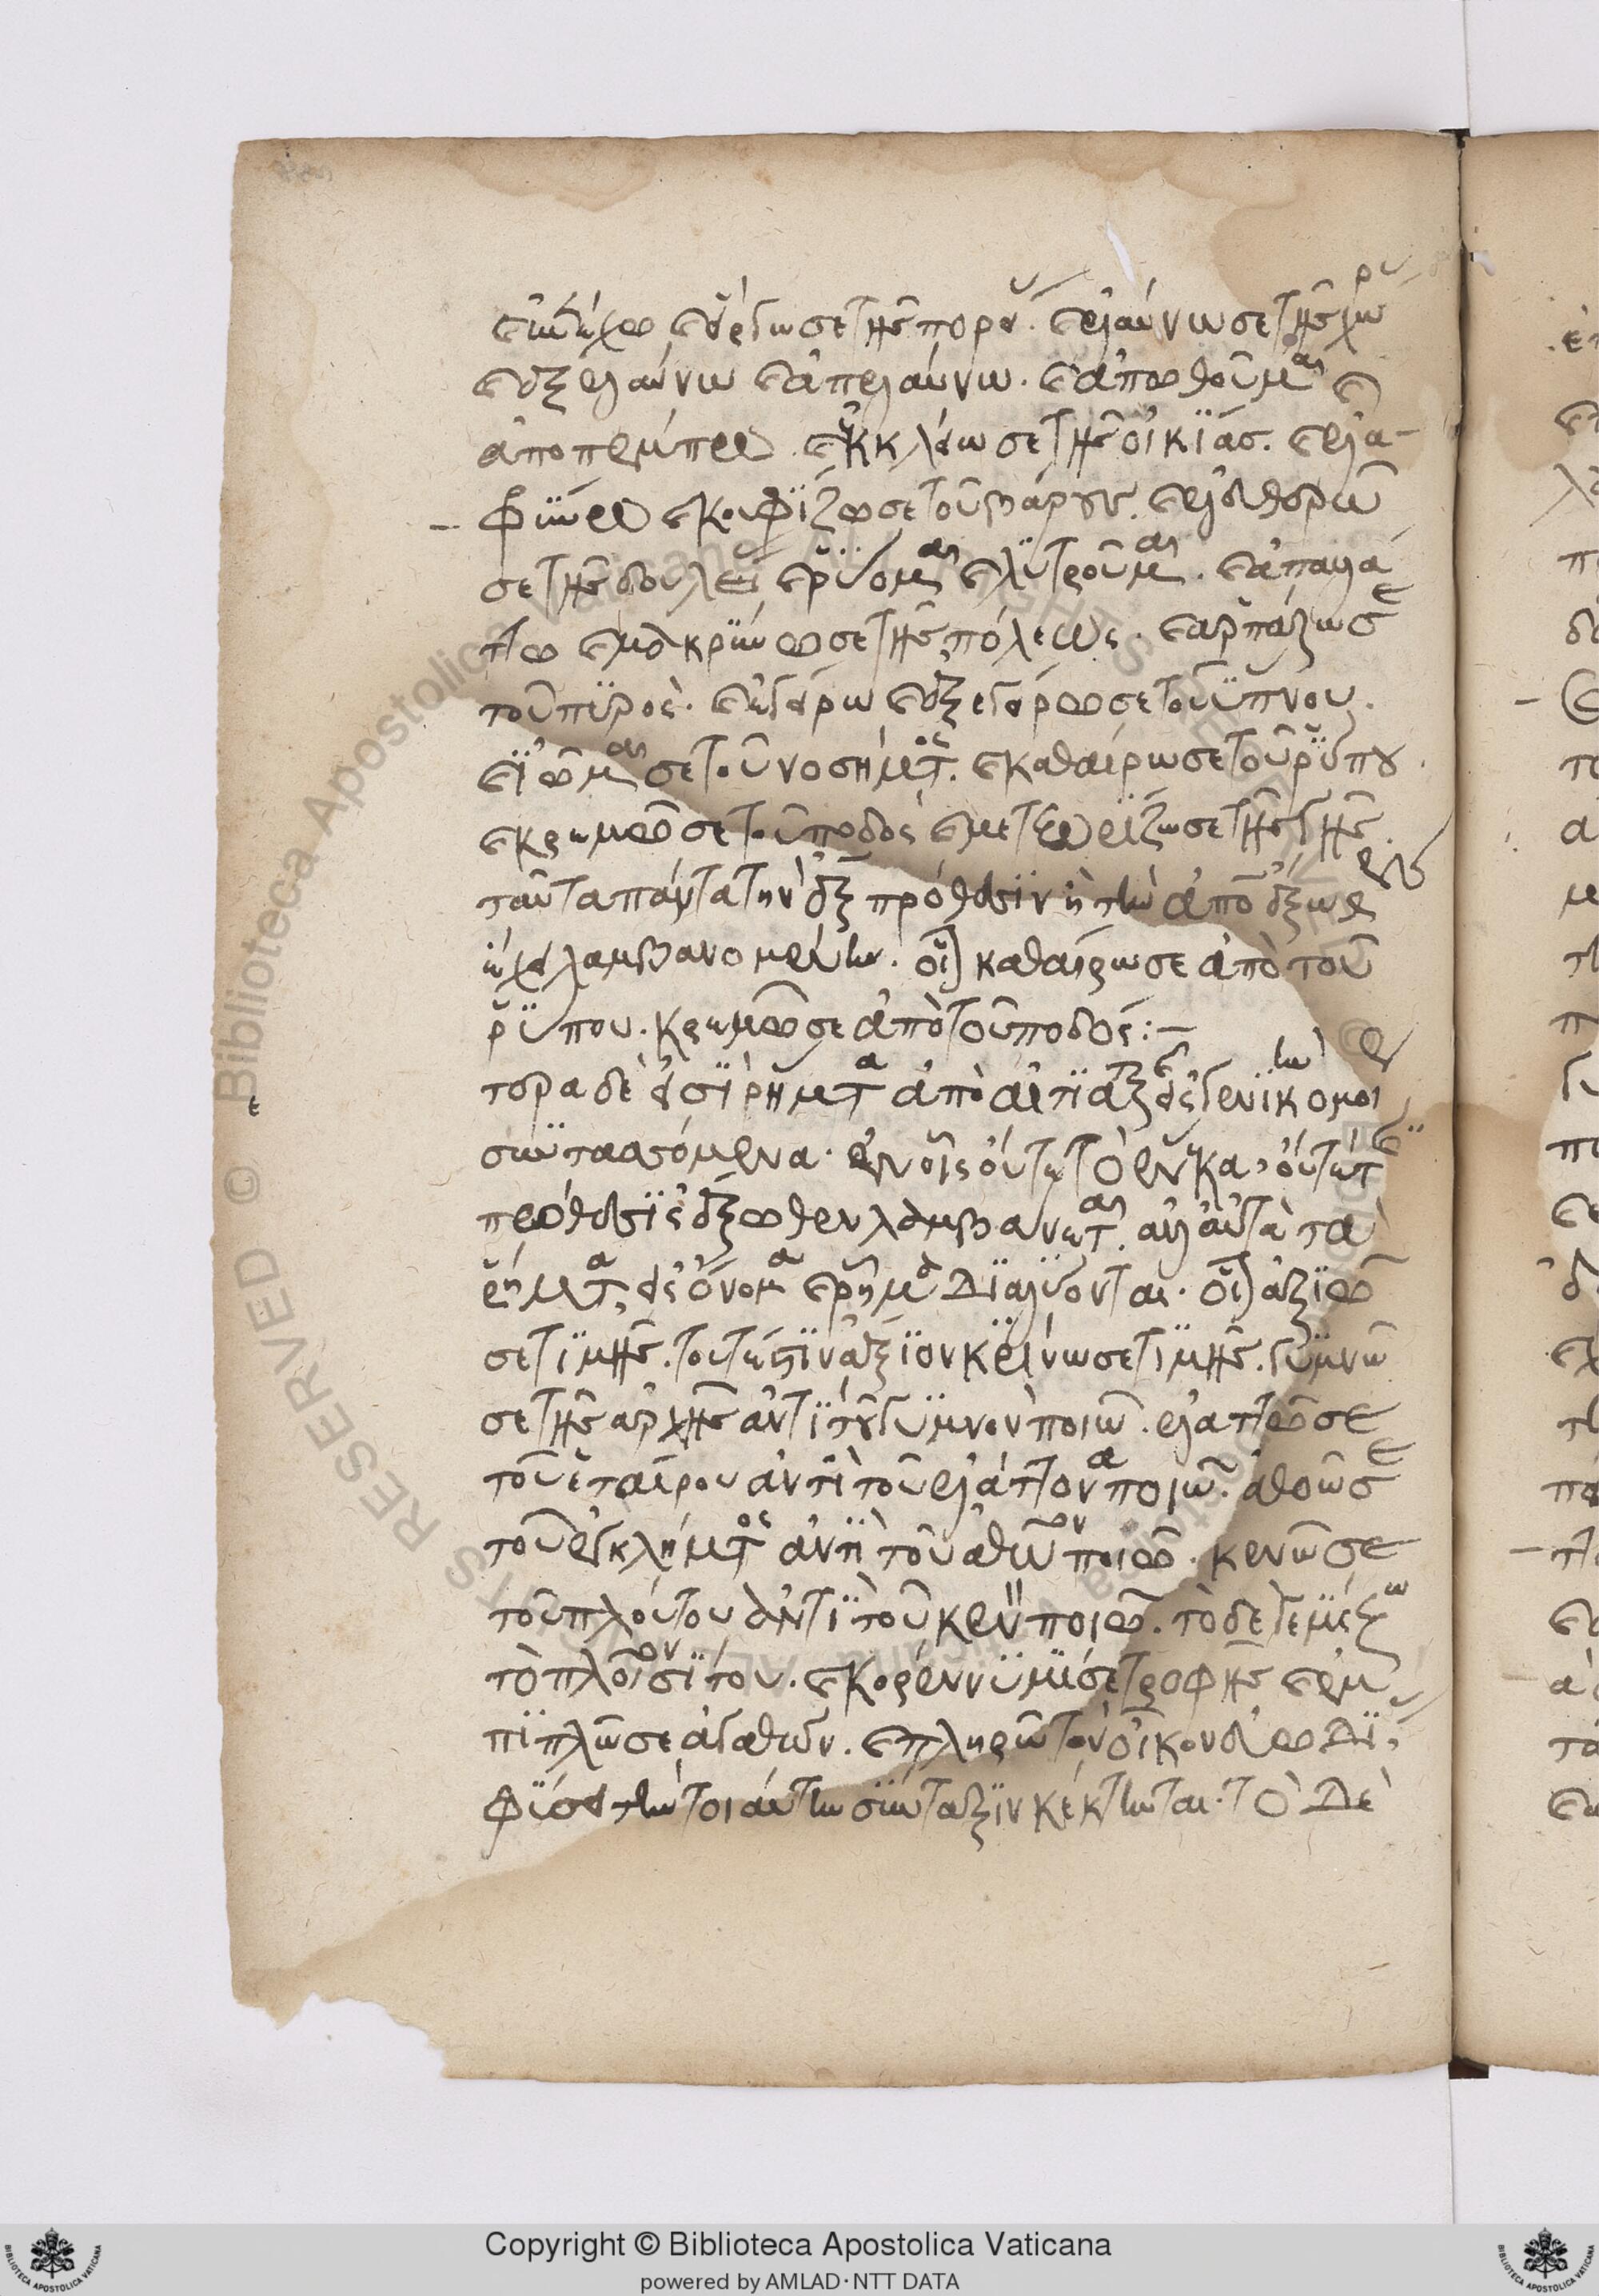 καὶ εἴργω σε τῆς πορεί. καὶ ἐλαύνω σε τῆς χώρ
καὶ ἐξελαύνω καὶ ἀπελαύνω. καὶ ἀπωθοῦμαι καὶ
ἀποπέμπω. καὶ ἐκκλείω σε τῆς οἰκίας. καὶ ἐλα-
φρύνω καὶ κουφίζω σε τοῦ βάρους. καὶ ἐλευθερῶ
σε τῆς δουλεί καὶ ῥύομαι καὶ λυτροῦμαι. καὶ ἀπαλλά
ττω καὶ μακρύνω σε τῆς πόλεως. καὶ ἁρπάζω σε
τοῦ πυρὸς. καὶ ἐγείρω καὶ ἐξεγείρω σε τοῦ ὕπνου.
καὶ ἰῶμαι σε τοῦ νοσήματος. καὶ καθαίρω σε τοῦ ῥύπου.
καὶ κρεμῶ σε τοῦ ποδὸς καὶ μετεωρίζω σε τῆς γῆς.
ταῦτα πάντα τὴν ἐξ πρόθεσιν ἢ τὴν ἀπὸ ἔξωθεν
λαμβανομένην. οἷον καθαίρω σε ἀπὸ τοῦ
ῥύπου. κρεμῶ σε ἀπὸ τοῦ ποδός:–
ἕτερα δέ εἰσι ῥήματα ἀπὸ αἰτιατικῆς εἰς γενικὴν ὁμοί
συντασσόμενα. ἐν οἷς οὔτε τὸ ἕνεκα, οὔτέ τις
πρόθεσις ἔξωθεν λαμβάνεται. ἀλλ' αὐτὰ τὰ
ῥήματα εἰς ὄνομα καὶ ῥῆμα διαλύονται. οἷον ἀξιῶ
σε τιμῆς. τουτέστιν ἄξιον κρίνω σε τιμῆς. γυμνῶ
σε τῆς ἀρχῆς ἀντὶ τοῦ γυμνὸν ποιῶ. ἐλαττῶ σε
τοῦ ἑταίρου ἀντὶ τοῦ ἐλάττονα ποιῶ. ἀθοῶ σε
τοῦ ἐγκλήματος ἀντὶ τοῦ ἀθῶον ποιῶ. κενῶ σε
τοῦ πλούτου ἀντὶ τοῦ κενὸν ποιῶ. τὸ δὲ γεμίζω
τὸ πλοῖον σίτου. καὶ κορέννυμί σε τροφῆς καὶ ἐμ
πιπλῶ σε ἀγαθῶν. καὶ πληρῶ τὸν οἶκον εὐωδί,
φύσει τὴν τοιαύτην σύνταξιν κέκτηνται. τὸ δὲ
Copyright © Biblioteca Apostolica Vaticana
powered by AMLAD·NTT DATA